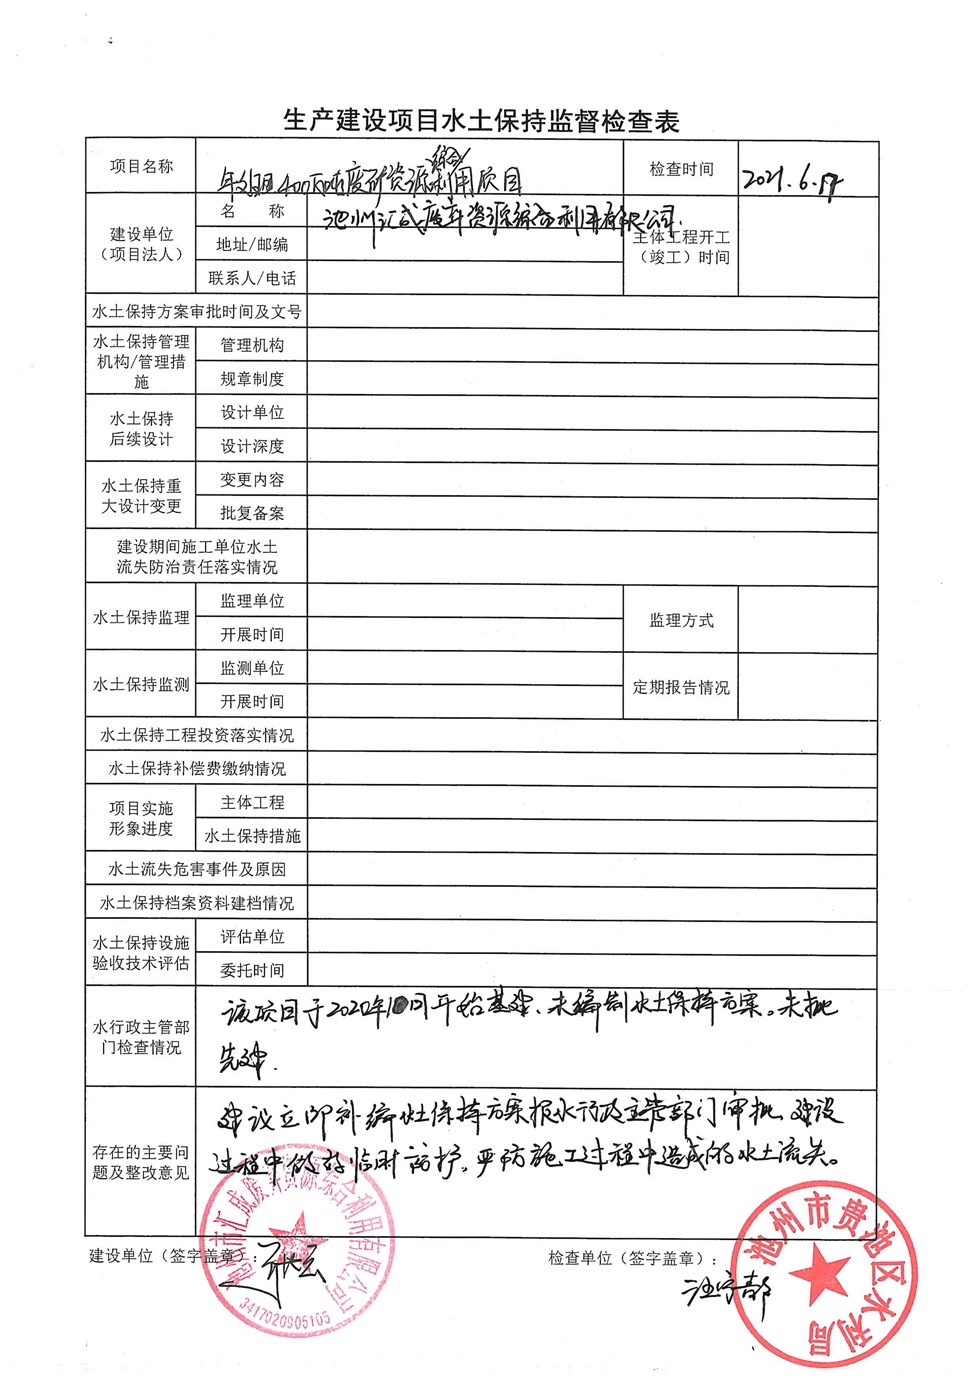 生产建设项目水土保持监督检查表
项目名称
年处理400万吨废矿资源综合利用项目
检查时间
2021.6.17
建设单位
（项目法人）
名　　称
池州汇成废弃资源综合利用有限公司
地址/邮编
联系人/电话
主体工程开工
（竣工）时间
水土保持方案审批时间及文号
水土保持管理
机构/管理措
施
管理机构
规章制度
水土保持
后续设计
设计单位
设计深度
水土保持重
大设计变更
变更内容
批复备案
建设期间施工单位水土
流失防治责任落实情况
水土保持监理
监理单位
开展时间
监理方式
水土保持监测
监测单位
开展时间
定期报告情况
水土保持工程投资落实情况
水土保持补偿费缴纳情况
项目实施
形象进度
主体工程
水土保持措施
水土流失危害事件及原因
水土保持档案资料建档情况
水土保持设施
验收技术评估
评估单位
委托时间
水行政主管部
门检查情况
该项目于2020年10月开始基建、未编制水土保持方案。未批
先建.
存在的主要问
题及整改意见
建议立即补编水土保持方案报水行政主管部门审批，建设
过程中做好临时防护，严防施工过程中造成的水土流失。
建设单位（签字盖章）:
检查单位（签字盖章）:
池州市汇成废弃资源综合利用有限公司
3417020905105
池州市贵池区水利局